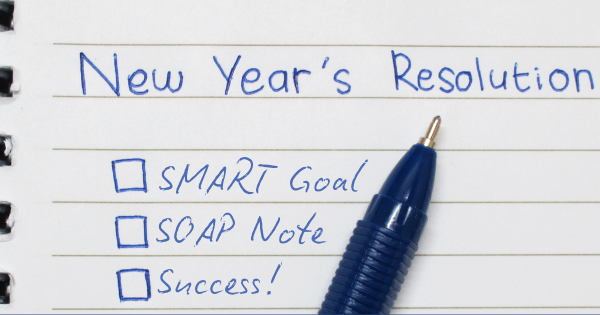 New Year's Resolution
SMART Goal
SOAP Note
Success!